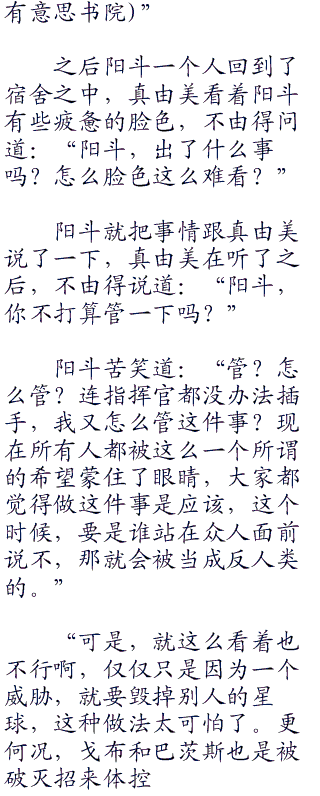 有意思书院)”
之后阳斗一个人回到了
宿舍之中，真由美看着阳斗
有些疲惫的脸色，不由得问
道：“阳斗，出了什么事
吗？怎么脸色这么难看？”
阳斗就把事情跟真由美
说了一下，真由美在听了之
后，不由得说道：“阳斗，
你不打算管一下吗？”
阳斗苦笑道：“管？怎
么管？连指挥官都没办法插
手，我又怎么管这件事？现
在所有人都被这么一个所谓
的希望蒙住了眼睛，大家都
觉得做这件事是应该，这个
时候，要是谁站在众人面前
说不，那就会被当成反人类
的。”
“可是，就这么看着也
不行啊，仅仅只是因为一个
威胁，就要毁掉别人的星
球，这种做法太可怕了。更
何况，戈布和巴茨斯也是被
破灭招来体控